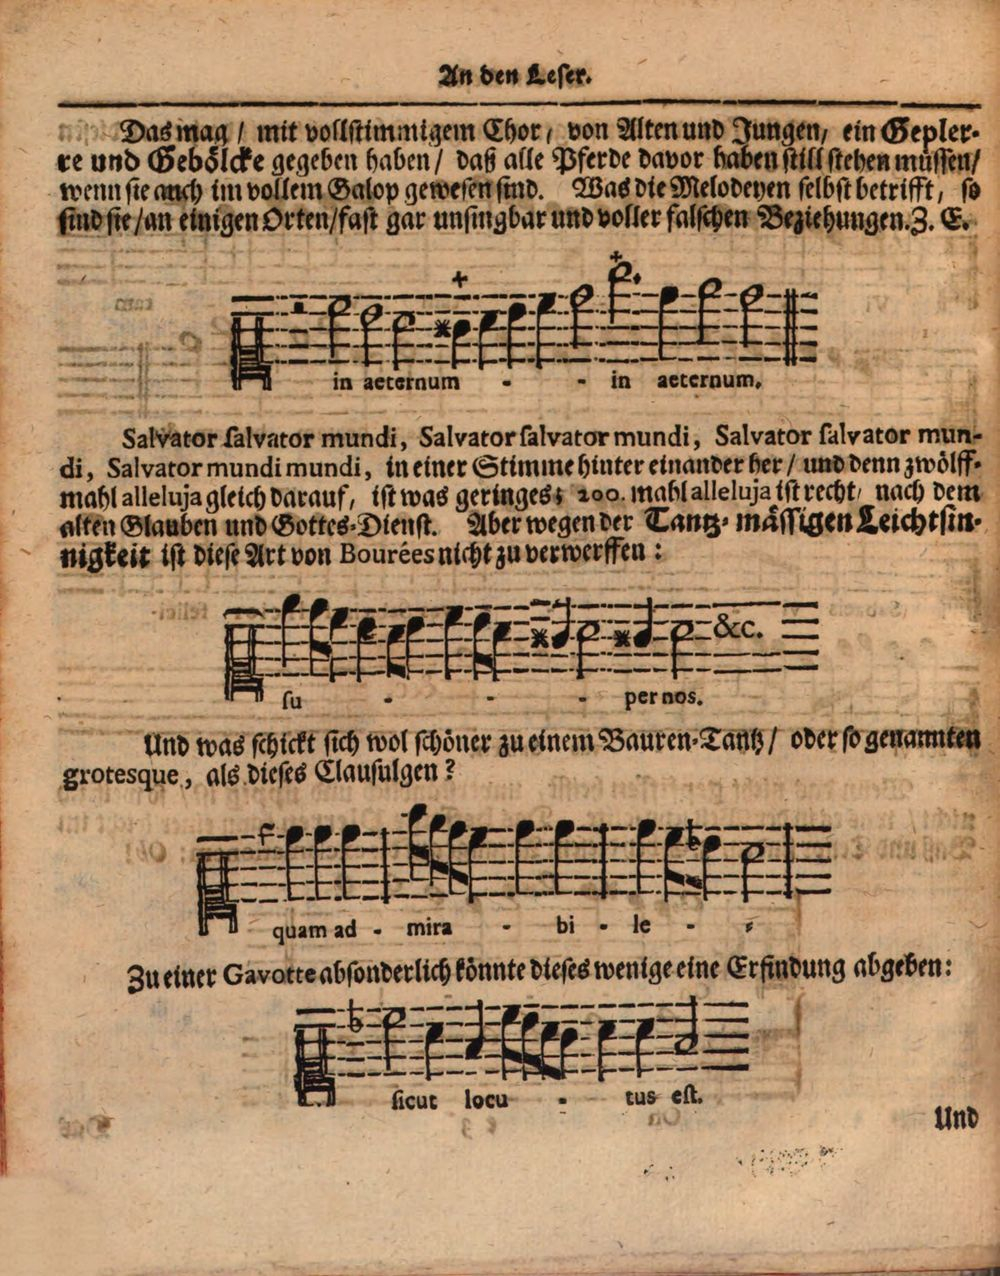 An den Leser.
Das mag / mit vollstimmigem Chor, von Alten und Jungen, ein Gepler-
re und Gebölcke gegeben haben / daß alle Pferde davor haben still stehen müssen /
wenn sie auch im vollem Galop gewesen sind. Was die Melodeyen selbst betrifft, so
sind sie / an einigen Orten / fast gar unsingbar und voller falschen Beziehungen. Z. E.
in aeternum - - in aeternum.
Salvator salvator mundi, Salvator salvator mundi, Salvator salvator mun-
di, Salvator mundi mundi, in einer Stimme hinter einander her / und denn zwölff-
mahl alleluja gleich darauf, ist was geringes; 200. mahl alleluja ist recht, nach dem
alten Glauben und Gottes-Dienst. Aber wegen der Tantz-mässigen Leichtsin-
nigkeit ist diese Art von Bourées nicht zu verwerffen:
&c.
su - - - per nos.
Und was schickt sich wol schöner zu einem Bauren-Tantz / oder so genannten
grotesque, als dieses Clausulgen?
quam ad - mira - bi - le -
Zu einer Gavotte absonderlich könnte dieses wenige eine Erfindung abgeben:
sicut locu - tus est.
Und